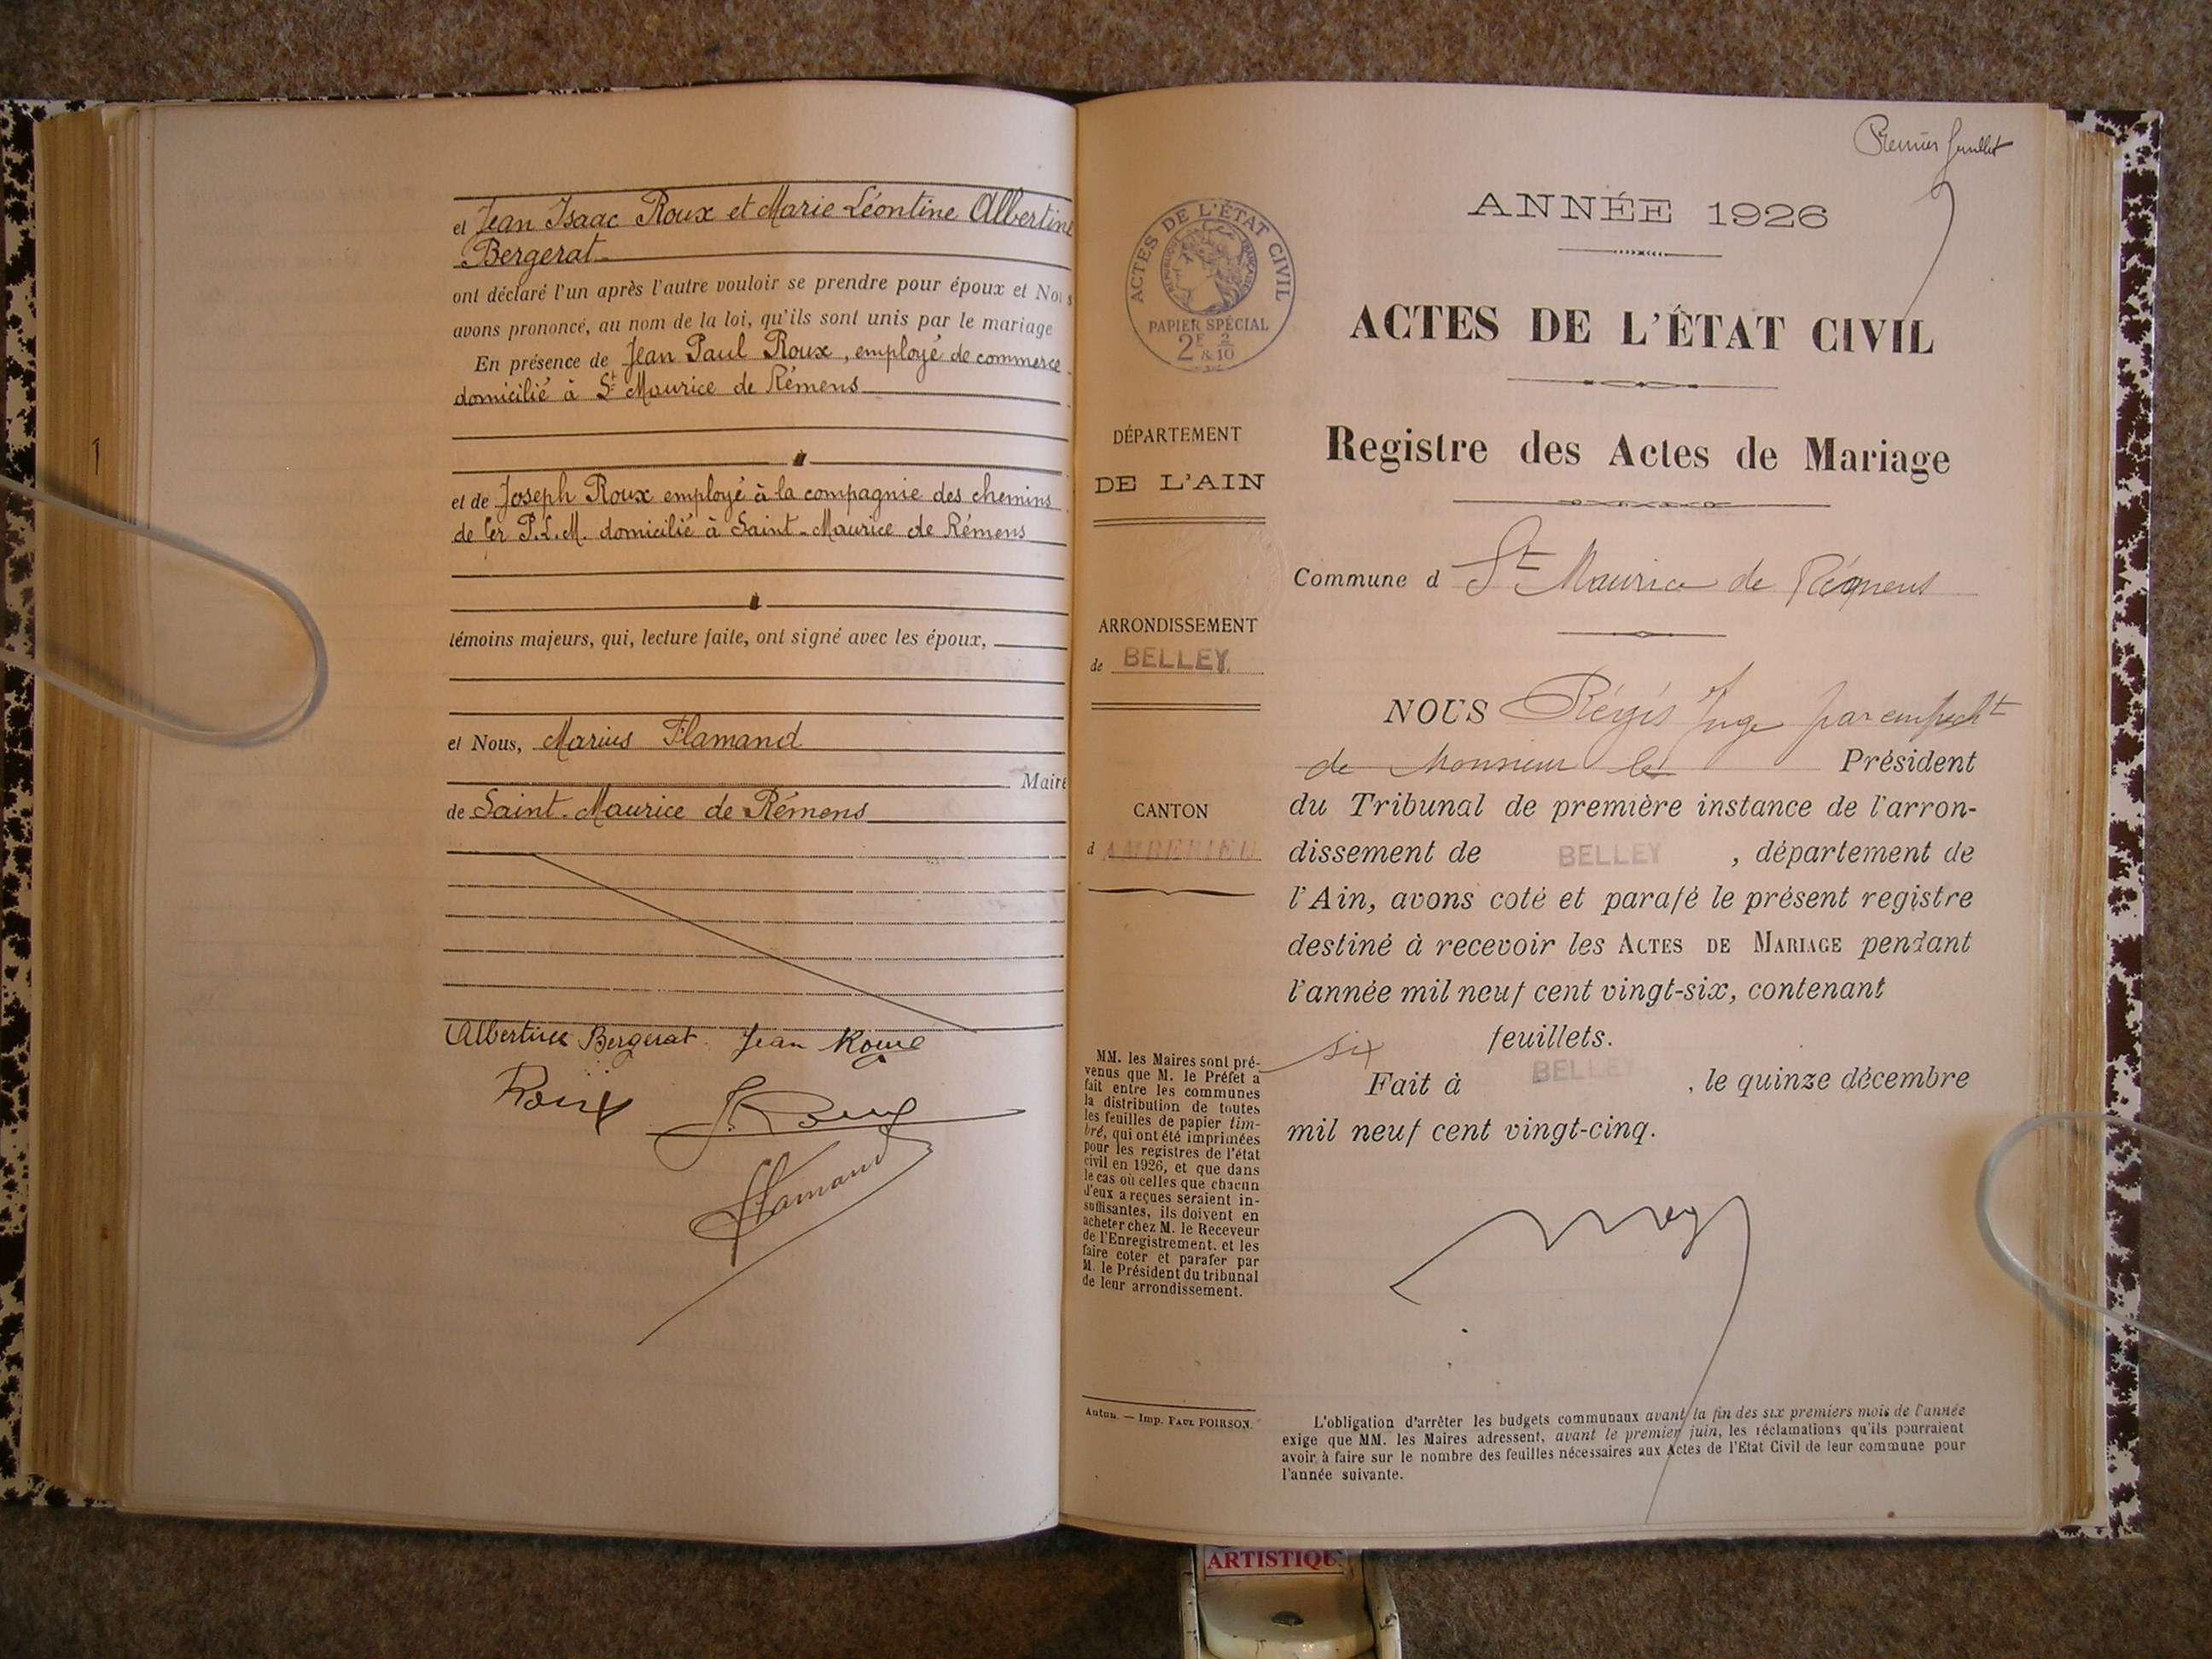 et Jean Isaac Roux et Marie Léontine Albertine
Bergerat
ont déclaré l'un après l'autre vouloir se prendre pour époux et Nous
avons prononcé, au nom de la loi, qu'ils sont unis par le mariage
En présence de Jean Paul Roux, employé de commerce
domicilié à St Maurice de Rémens
et de Joseph Roux employé à la compagnie des chemins
de fer P.L.M. domicilié à Saint-Maurice de Rémens
témoins majeurs, qui, lecture faite, ont signé avec les époux,
et Nous, Marius Flamand
Maire
de Saint-Maurice de Rémens
Albertine Bergerat Jean Roux
Roux
J. Roux
Flamand
Premier feuillet
ANNÉE 1926
ACTES DE L'ÉTAT CIVIL
RÉPUBLIQUE FRANÇAISE
PAPIER SPÉCIAL
2F 2/10
& 10
ACTES DE L'ÉTAT CIVIL
Registre des Actes de Mariage
Commune d St Maurice de Rémens
DÉPARTEMENT
DE L'AIN
ARRONDISSEMENT
de BELLEY
CANTON
d AMBERIEU
MM. les Maires sont pré-
venus que M. le Préfet a
fait entre les communes
la distribution de toutes
les feuilles de papier tim-
bré, qui ont été imprimées
pour les registres de l'état
civil en 1926, et que dans
le cas où celles que chacun
d'eux a reçues seraient in-
suffisantes, ils doivent en
acheter chez M. le Receveur
de l'Enregistrement, et les
faire coter et parafer par
M. le Président du tribunal
de leur arrondissement.
Autun. — Imp. PAUL POIRSON.
NOUS Régis Juge par empecht
de Monsieur le Président
du Tribunal de première instance de l'arron-
dissement de BELLEY, département de
l'Ain, avons coté et parafé le présent registre
destiné à recevoir les ACTES DE MARIAGE pendant
l'année mil neuf cent vingt-six, contenant
six feuillets.
Fait à BELLEY, le quinze décembre
mil neuf cent vingt-cinq.
L'obligation d'arrêter les budgets communaux avant la fin des six premiers mois de l'année
exige que MM. les Maires adressent, avant le premier juin, les réclamations qu'ils pourraient
avoir à faire sur le nombre des feuilles nécessaires aux Actes de l'Etat Civil de leur commune pour
l'année suivante.
ARTISTIQU